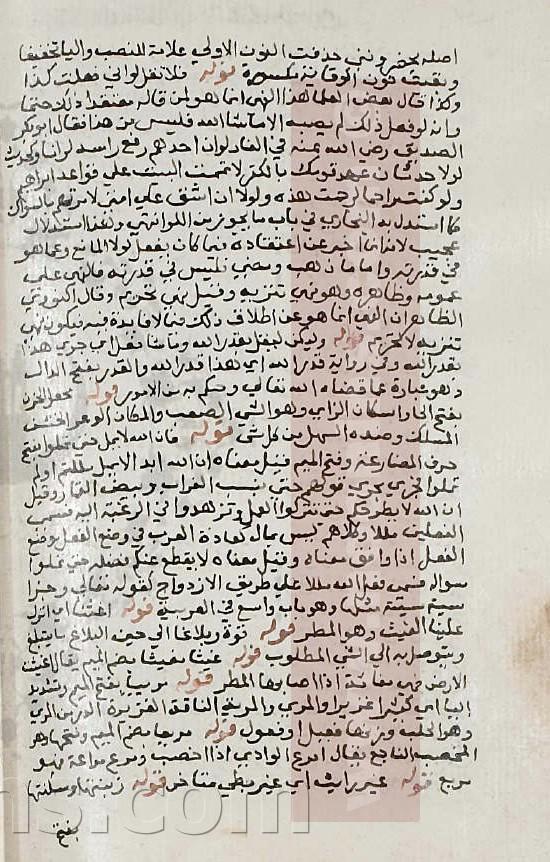 اصله يحضرونني حذفت النون الاولي علامة للنصب واليا تخفيفا
وبقيت نون الوقاية مكسورة قوله فلا تقل لو اني فعلت كذا
وكذا قال بعض العلما هذا النهي انما هو لمن قاله معتقدا ذلك حتما
وانه لو فعل ذلك لم يصبه الا ما شا الله فليس من هذا لقول ابو بكر
الصديق رضي الله عنه في الغار لو ان احدهم رفع راسه لرانا وكحديث
لولا حدثان عهد قومك بالكفر لاتممت البيت علي قواعد ابراهيم
ولو كنت راجما لرجمت هذه ولولا ان اشق علي امتي لامرتهم بالسواك
كما استدل به البخاري في باب ما يجوز من اللو انتهي وهذا استدلال
عجيب لانه انما اخبر عن اعتقاده فيما كان يفعل لولا المانع وعما هو
في قدرته واما ما ذهب ومضي فليس في قدرته فالنهي علي
عمومه وظاهره وهو نهي تنزيه وقيل نهي تحريم وقال النووي
الظاهر ان النهي انما هو عن اطلاق ذلك فيما لا فايدة فيه فيكون نهي
تنزيه لا تحريم قوله ولكن ليقل بقدر الله وما شا فعل اي جري هذا
بقدر الله وفي رواية قدر الله اي هذا قدر الله والقدر بفتح الدال
وهو عبارة عما قضاه الله تعالي وحكم به من الامور قوله تجعل الحزن
بفتح الحا واسكان الزاي وهو الشي الصعب والمكان الوعر الخشن
المسلك وضده السهل من كل شي قوله فان الله لا يمل حتي تملوا بفتح
حرف المضارعة وفتح الميم قيل معناه ان الله ابدا لا يمل مللتم او لم
تملوا فجري مجري قولهم حتي يشيب الغراب ويبيض القار وقيل
ان الله لا يطرحكم حتي تتركوا العمل وتزهدوا في الرغبة اليه فسمي
الفعلين مللا وكلاهما ليس بملل كعادة العرب في وضع الفعل موضع
الفعل اذا وافق معناه وقيل معناه لا يقطع عنكم فضله حتي تملوا
سواله فسمي فعل الله مللا علي طريق الازدواج كقوله تعالي وجزا
سيية سيية مثلها وهو باب واسع في العربية قوله اغثنا اي انزل
علينا الغيث وهو المطر قوله قوة وبلاغا الي حين البلاغ ما يتبلغ
ويتوصل به الي الشي المطلوب قوله غيثا مغيثا بضم الميم يقال اغيث
الارض فهي مغاثة اذا اصابها المطر قوله مريا بفتح الميم وتشديد
اليا اي كثيرا غزيرا والمري والمرية الناقة الغزيرة الدر من المري
وهو الحلب وزنها فعيل او فعول قوله مريعا بضم الميم وفتحها وهو
المخصب الناجع يقال امرع الوادي اذا اخصب ومرع مراعة فهو
مريع قوله غير رايث اي غير بطي متاخر قوله زينتها وسكنها
بفتح
ns.com